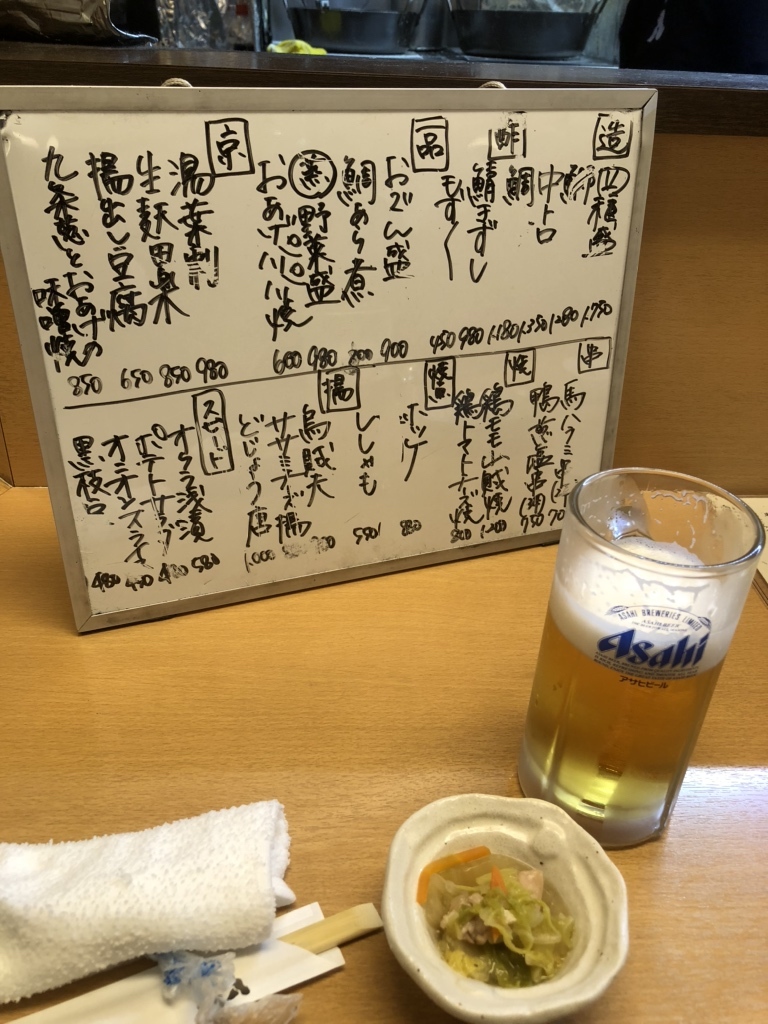 造
四種盛
1.750
鰤
1.280
中トロ
1.350
鯛
1.180
酢
鯖きずし
980
もずく
450
一品
おでん盛
900
鯛あら煮
800
蒸
野菜盛
980
おあげパリパリ焼
600
京
湯葉刺
980
生麩田楽
850
揚出し豆腐
650
九条葱とおあげの
味噌焼
850
串
馬ハラミ串
鴨葱塩串
750
焼
鶏モモ山賊焼
1.200
鶏トマトチーズ焼
800
ホッケ
880
ししゃも
550
揚
烏賊天
ササミチーズ揚
どじょう唐
1.000
スピード
オクラ浅漬
580
ポテトサラダ
オニオンスライス
黒枝豆
480
ASAHI BREWERIES LIMITED
Asahi
アサヒビール